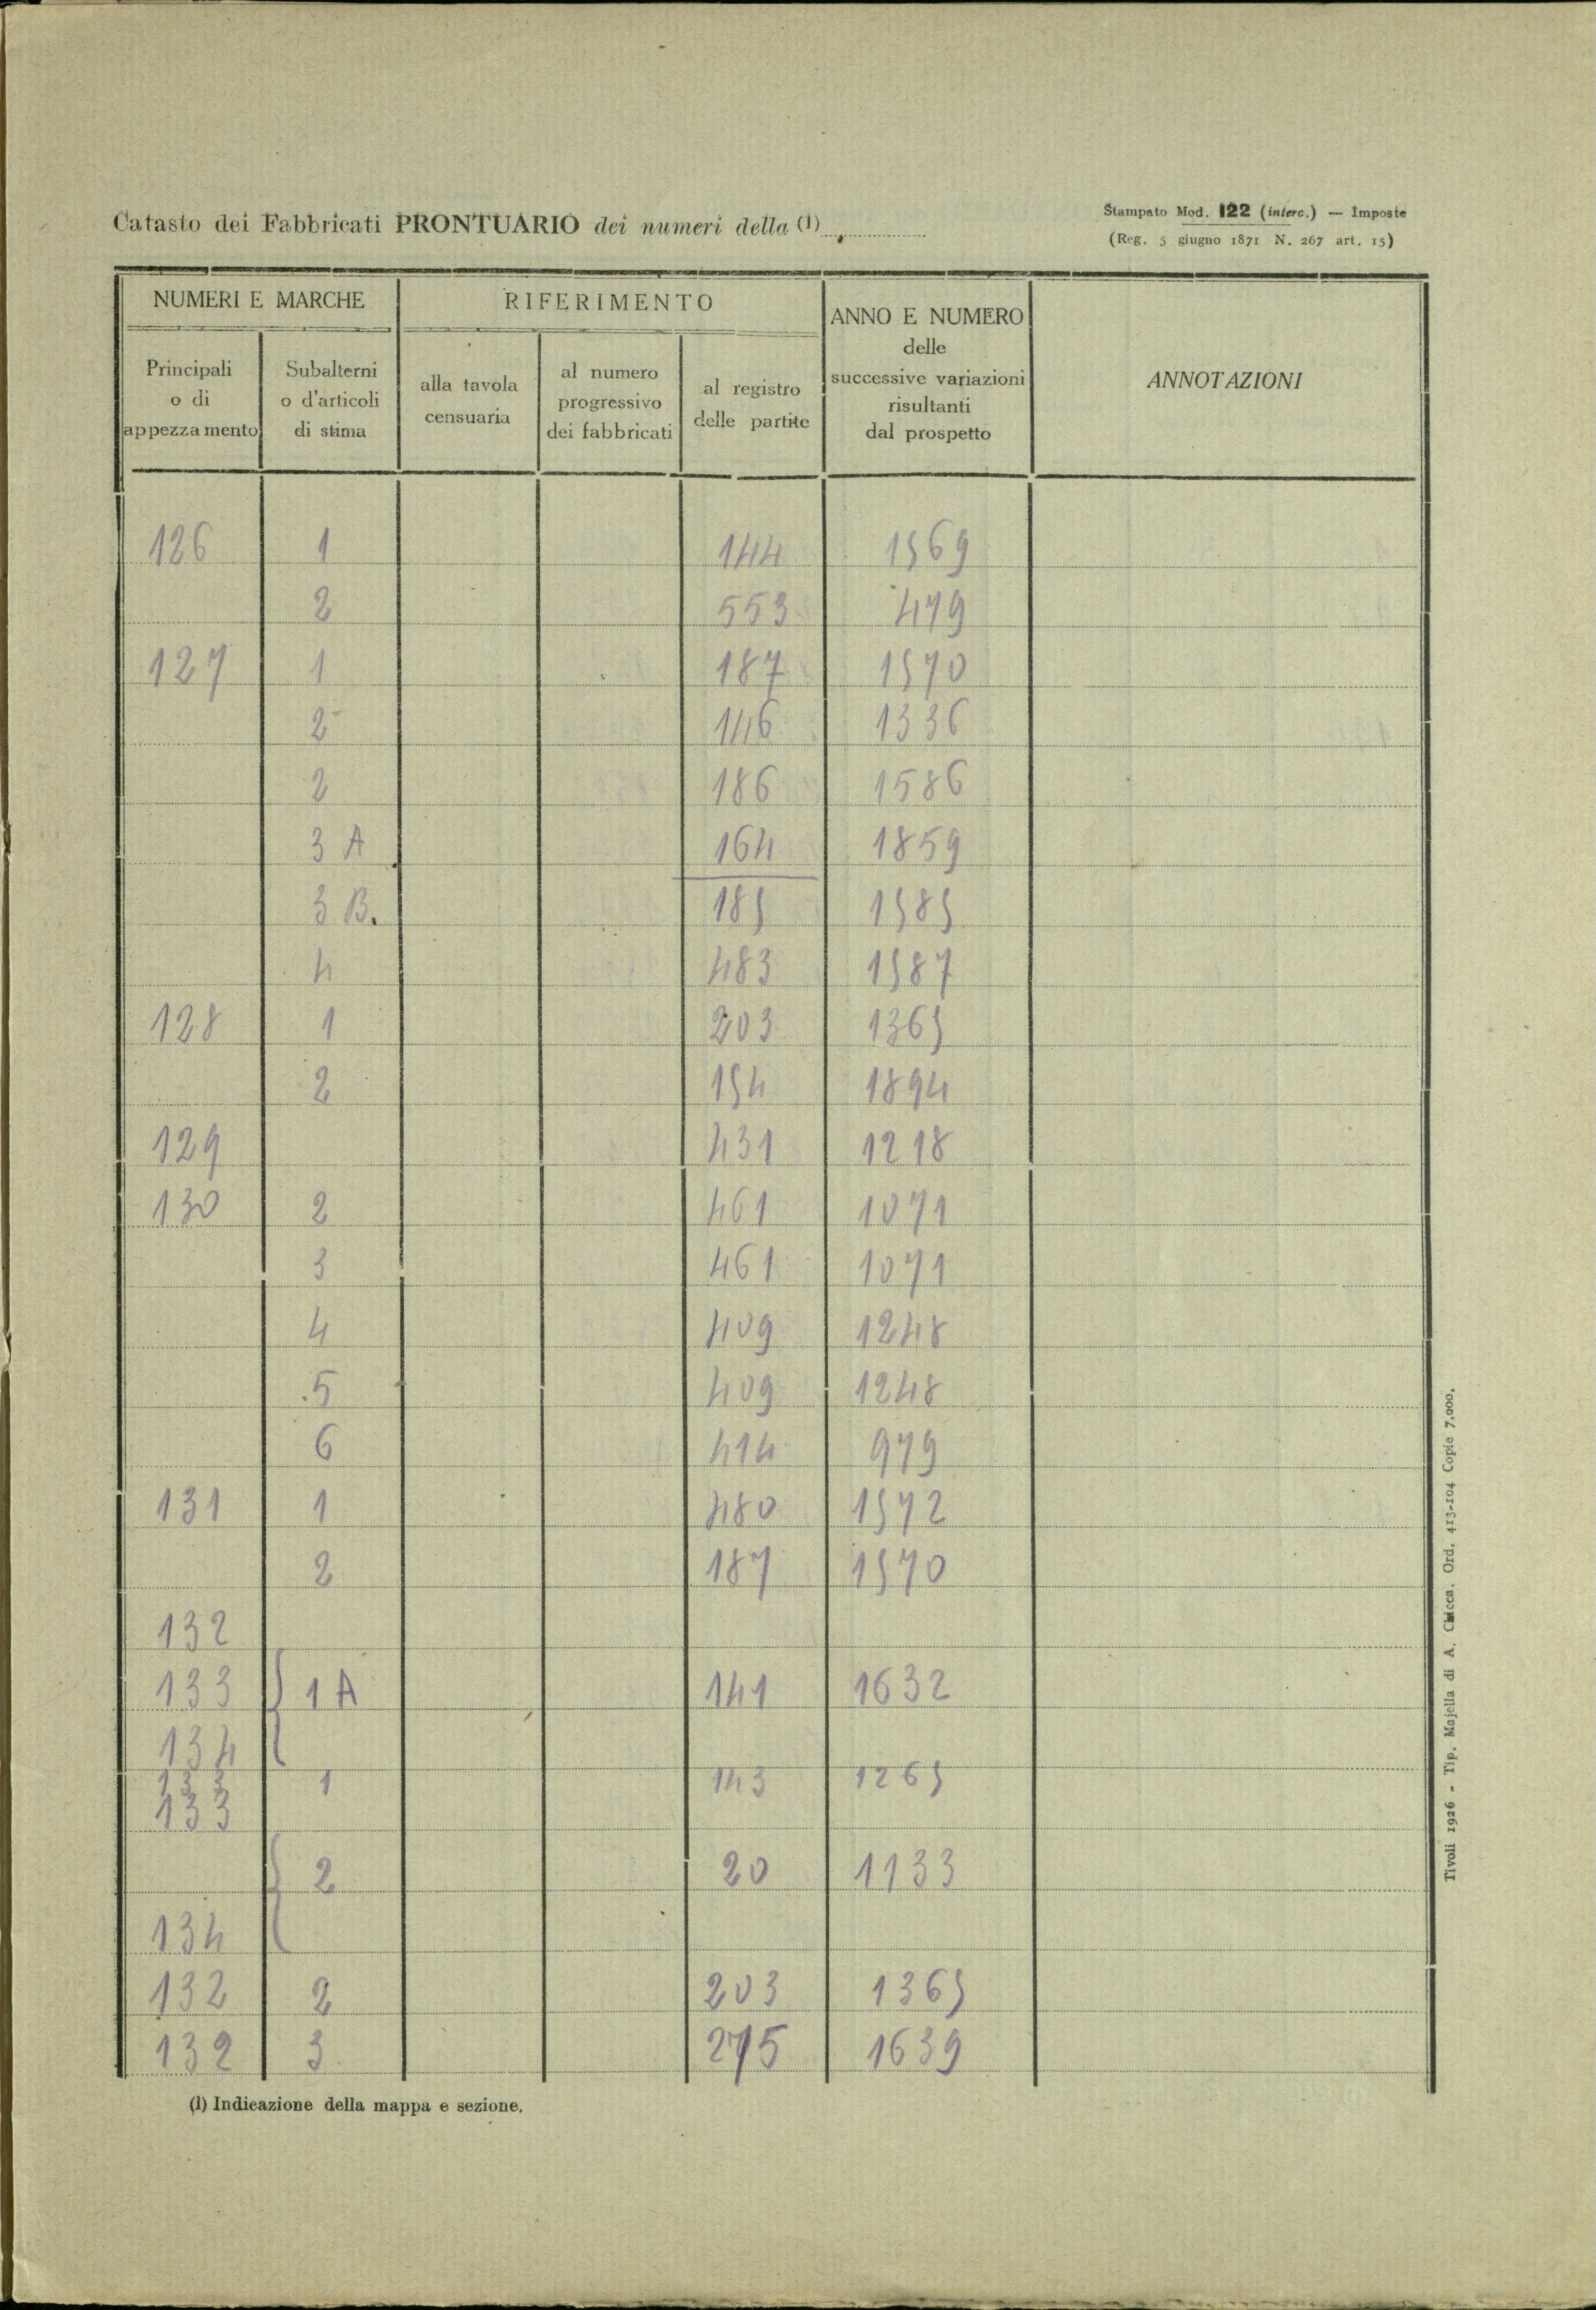 Catasto dei Fabbricati PRONTUARIO dei numeri della (1)
Stampato Mod. 122 (interc.) — Imposte
(Reg. 5 giugno 1871 N. 267 art. 15)
NUMERI E MARCHE
RIFERIMENTO
ANNO E NUMERO
delle
successive variazioni
risultanti
dal prospetto
ANNOTAZIONI
Principali
o di
appezzamento
Subalterni
o d'articoli
di stima
alla tavola
censuaria
al numero
progressivo
dei fabbricati
al registro
delle partite
126 1 144 1569
2 553 479
127 1 187 1570
2 146 1336
2 186 1586
3 A 164 1859
3 B. 185 1585
4 483 1587
128 1 203 1365
2 154 1894
129 431 1218
130 2 461 1071
3 461 1071
4 409 1248
5 409 1248
6 414 979
131 1 480 1572
2 187 1570
132
133 1 A 141 1632
134
133 1 143 1265
133
2 20 1133
134
132 2 203 1365
132 3 275 1639
(1) Indicazione della mappa e sezione.
Tivoli 1926 - Tip. Majella di A. Chicca. Ord. 413-104 Copie 7.000.